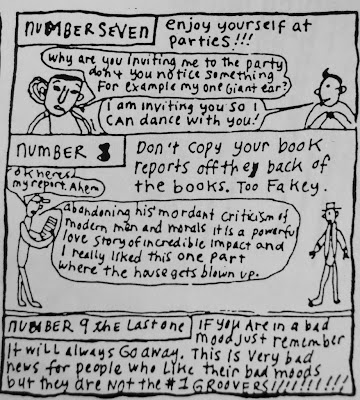 NUMBER SEVEN
enjoy yourself at
parties!!!
why are you inviting me to the party
don't you notice something
For example my one Giant ear?
I am inviting you so I
CAN dance with you!
NUMBER 8
Don't copy your book
reports off they back of
the books. Too Fakey.
OK heres
my report. Ahem
abandoning his mordant criticism of
modern men and morals it is a powerful
love story of incredible impact and
I really liked this one part
where the house gets blown up.
NUMBER 9 the Last one
IF you Are in a bad
mood Just remember
It will always Go away. This is Very bad
news for people who Like their bad moods
but they are NOT the #1 GROOVERS!!!!!!!!!!